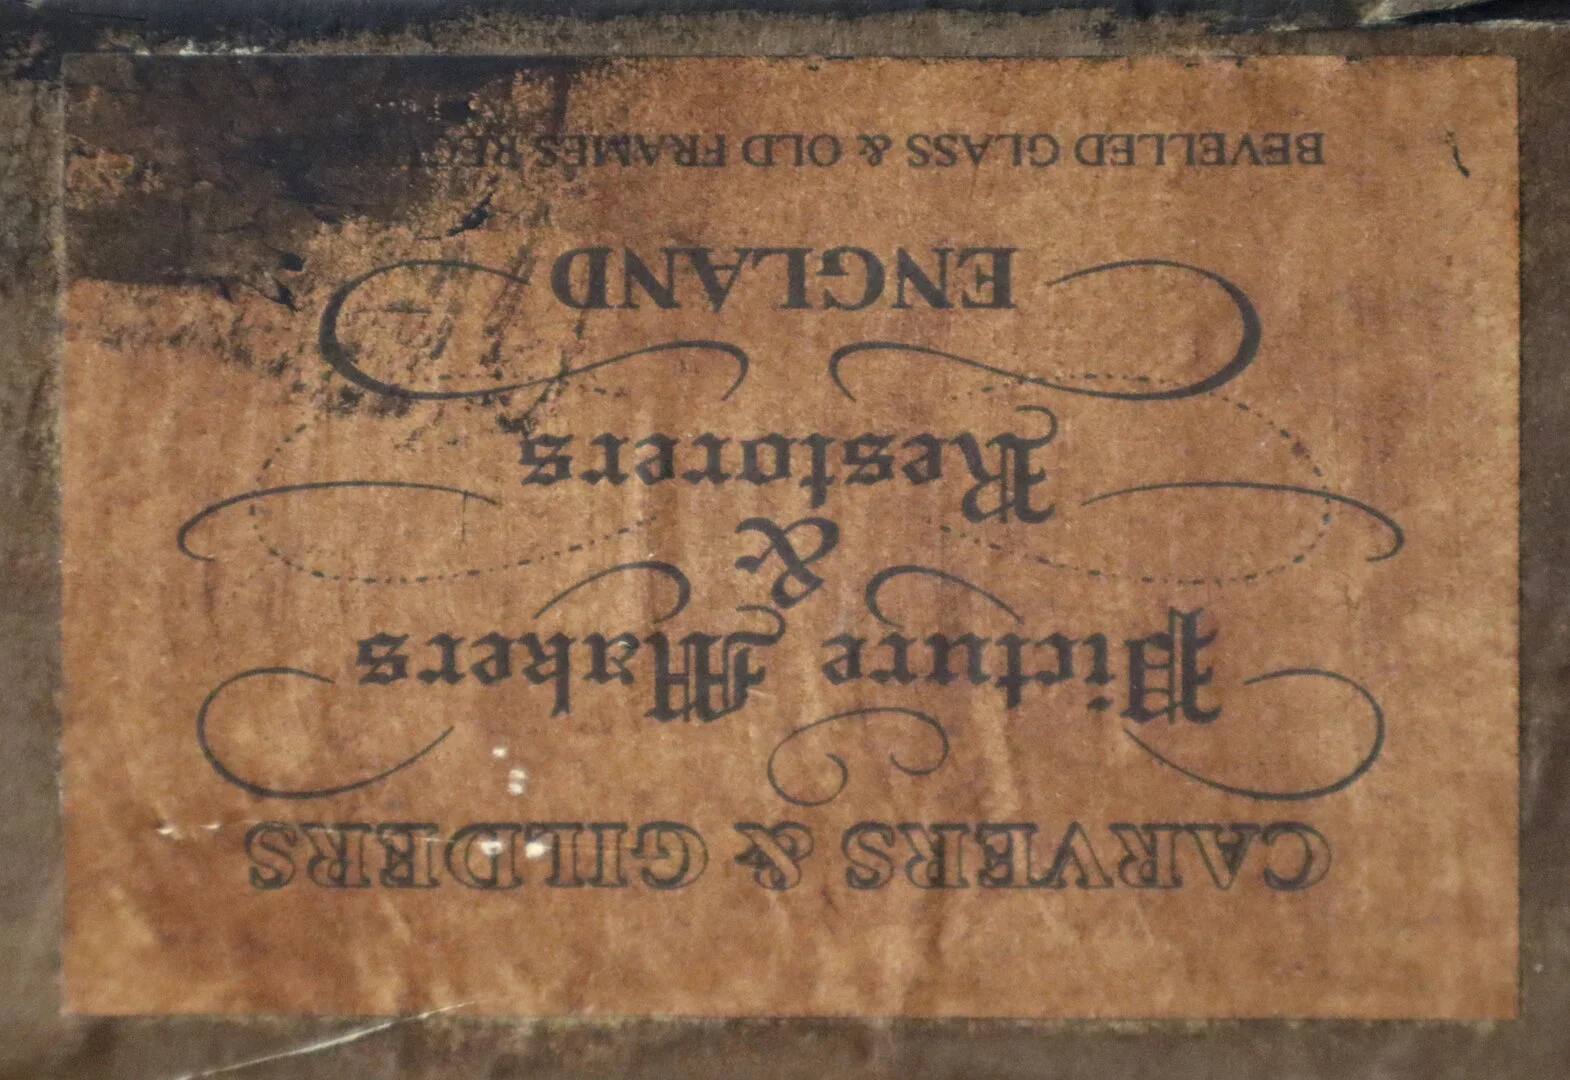 CARVERS & GILDERS
Picture Makers
&
Restorers
ENGLAND
BEVELLED GLASS & OLD FRAMES